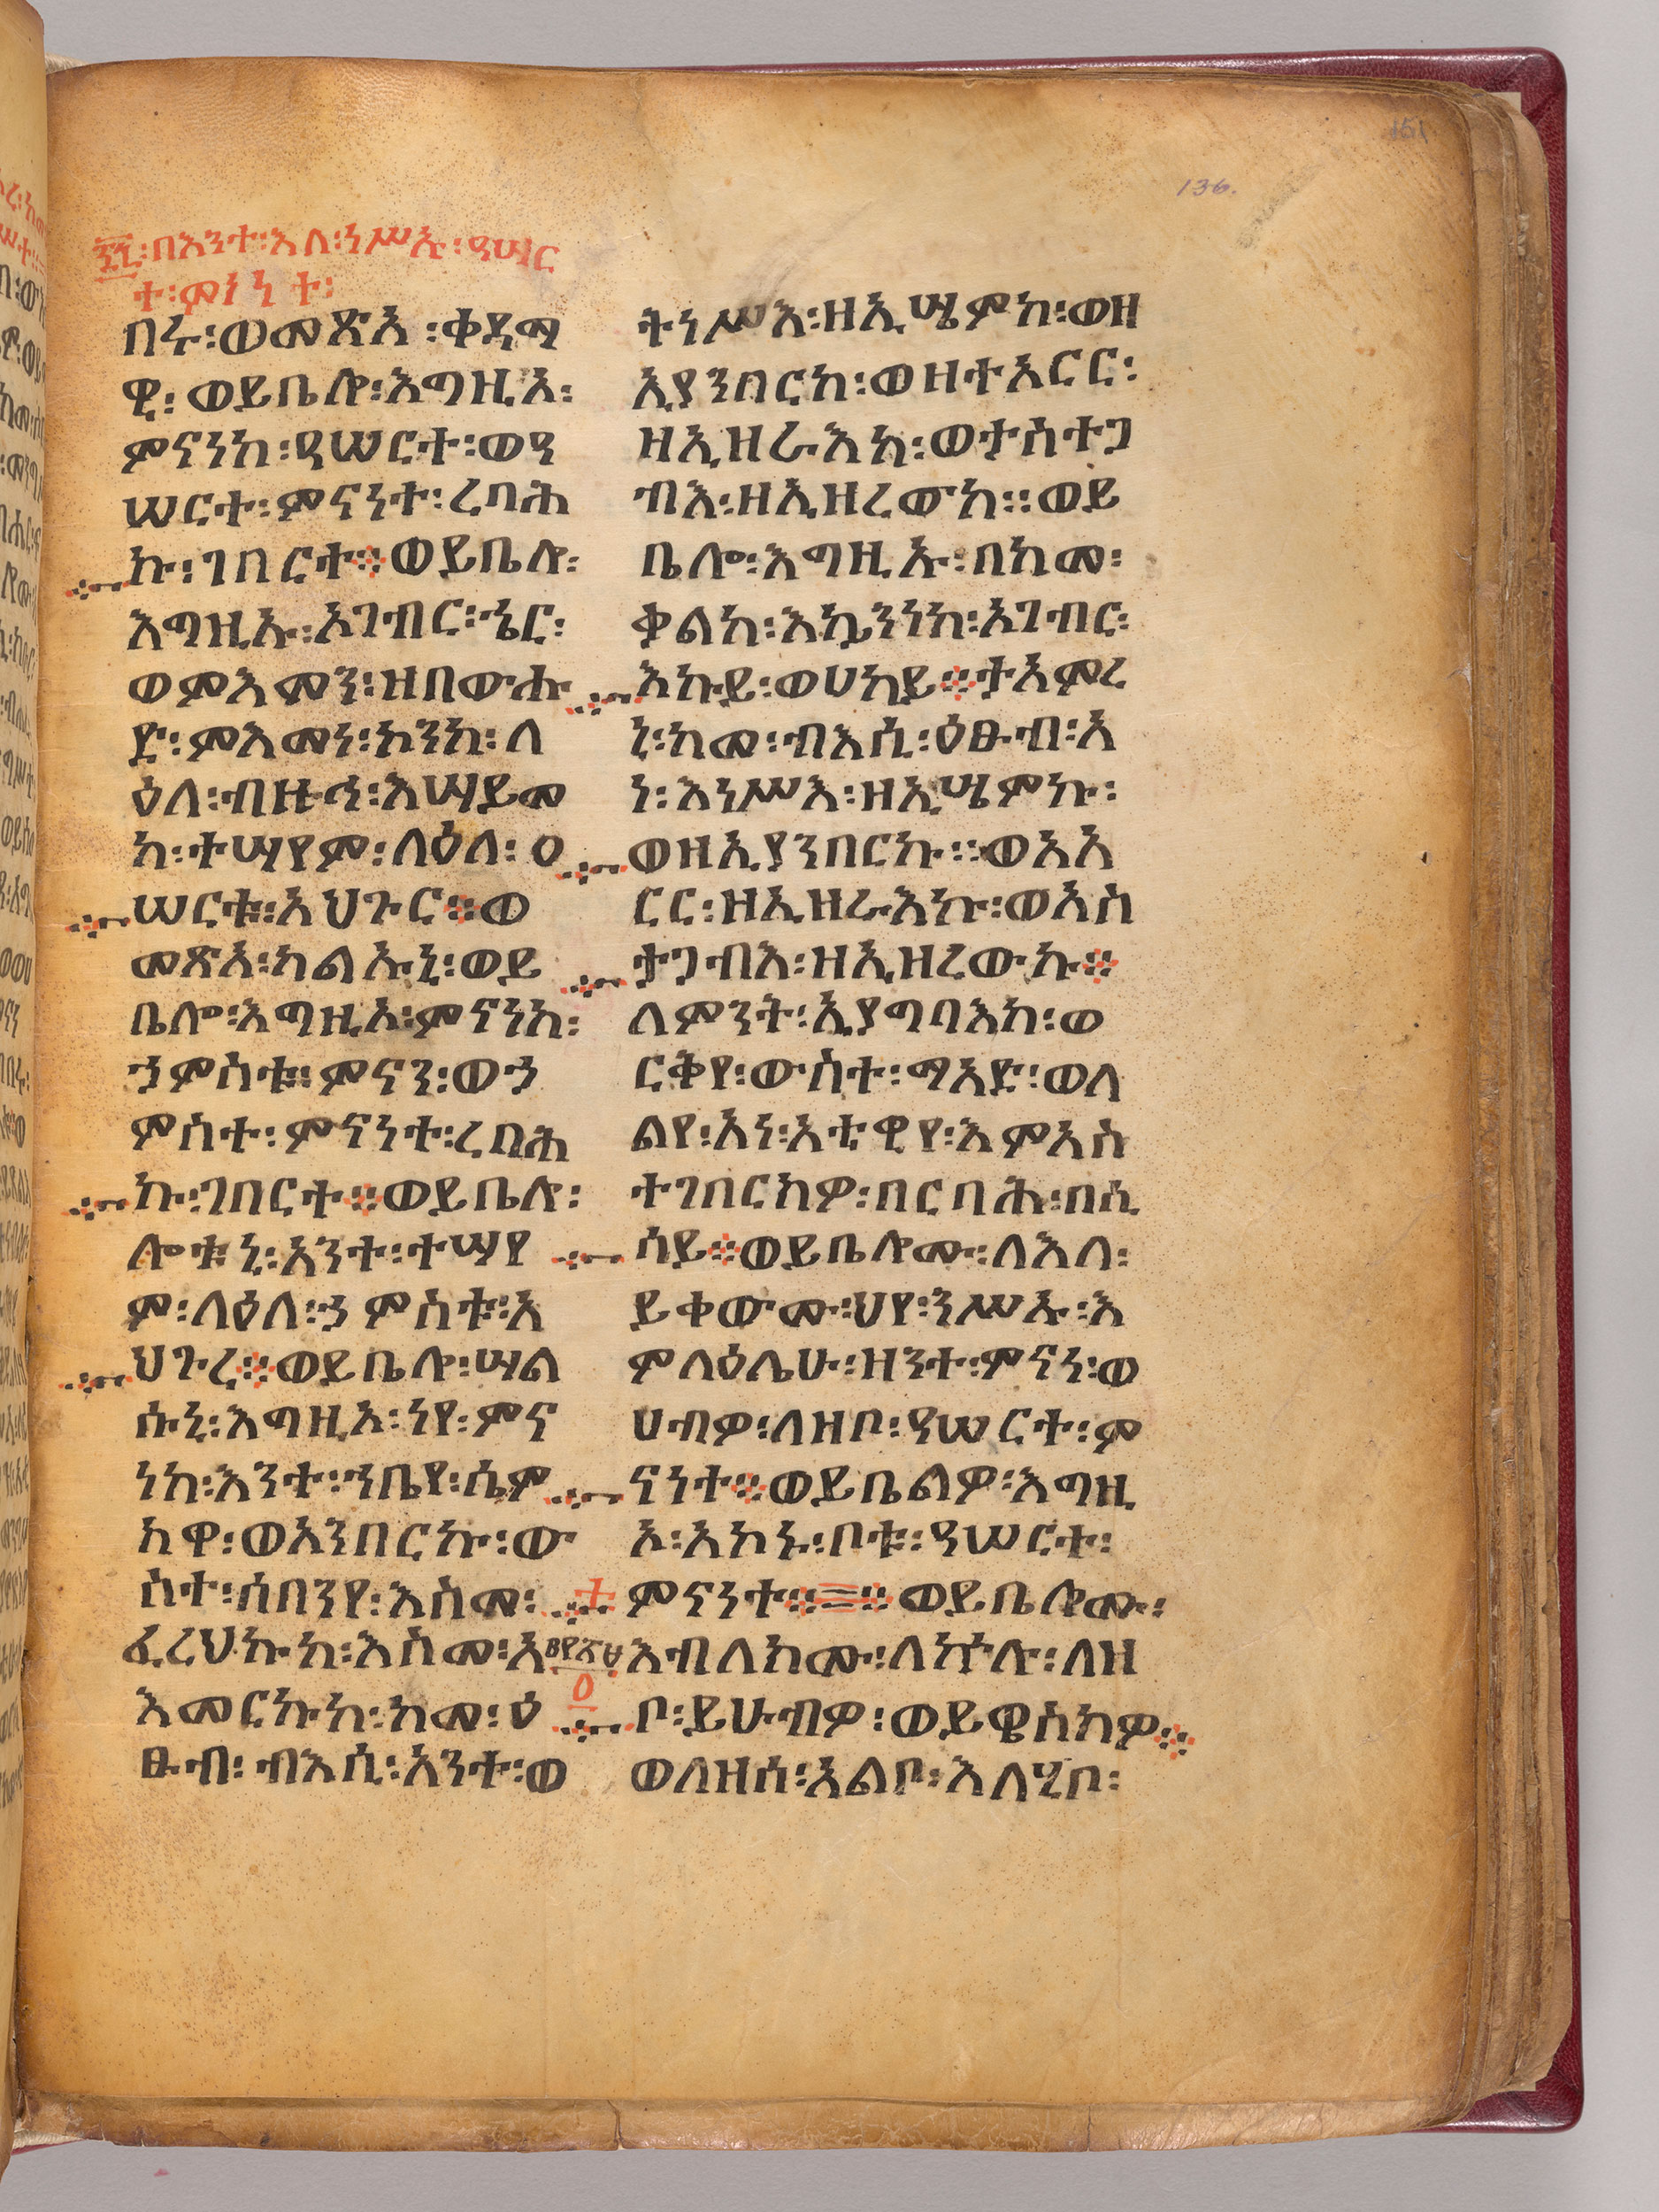 151
136.
፷፯፡በእንተ፡እለ፡ነሥኡ፡ዓሠር
ተ፡ምናናተ፡
በሩ፡ወመጽአ፡ቀዳማ
ዊ፡ወይቤሎ፡እግዚኦ፡
ምናነከ፡ዓሠርተ፡ወዓ
ሠርተ፡ምናነተ፡ረባሕ
ኩ፡ገበርተ፨ወይቤሎ፡
እግዚኡ፡ኦገብር፡ኄር፡
ወምእመን፡ዘበውሑ
ድ፡ምእመነ፡ኮንከ፡ለ
ዕለ፡ብዙኅ፡እሠይመ
ከ፡ተሠየም፡ላዕለ፡ዐ
ሠርቱ፡አህጉር፨ወ
መጽአ፡ካልኡኒ፡ወይ
ቤሎ፡እግዚኦ፡ምናነከ፡
ኃምስቱ፡ምናን፡ወኃ
ምስተ፡ምናነተ፡ረባሕ
ኩ፡ገበርተ፨ወይቤሎ፡
ሎቱኒ፡አንተ፡ተሠየ
ም፡ላዕለ፡ኃምስቱ፡አ
ህጉረ፨ወይቤሎ፡ሣል
ሱኒ፡እግዚኦ፡ነየ፡ምና
ነከ፡እንተ፡ኀቤየ፡ሴም
ከዋ፡ወአንበርኩ፡ው
ስተ፡ሰበንየ፡እስመ፡
ፈረህኩከ፡እስመ፡አ
እመርኩከ፡ከመ፡ዕ
ፁብ፡ብእሲ፡አንተ፡ወ
ትነሥእ፡ዘኢሤምከ፡ወዘ
ኢያንበርከ፡ወዘተአርር፡
ዘኢዘራእከ፡ወታስተጋ
ብእ፡ዘኢዘረውከ፡፡ወይ
ቤሎ፡እግዚኡ፡በከመ፡
ቃልከ፡እኴንነከ፡ኦገብር፡
እኩይ፡ወሀካይ፨ታአምረ
ኒ፡ከመ፡ብእሲ፡ዕፁብ፡አ
ነ፡እነሥእ፡ዘኢሤምኩ፡
ወዘኢያንበርኩ፡፡ወአአ
ርር፡ዘኢዘራእኩ፡ወእስ
ታጋብእ፡ዘኢዘረውኩ፨
ለምንት፡ኢያግባእከ፡ወ
ርቅየ፡ውስተ፡ማእድ፡ወለ
ልየ፡አነ፡አቲዊየ፡እምአስ
ተገበርክዎ፡በርባሕ፡በሲ
ሳይ፨ወይቤሎሙ፡ለእለ፡
ይቀውሙ፡ህየ፡ንሥኡ፡እ
ምላዕሌሁ፡ዘንተ፡ምናነ፡ወ
ሀብዎ፡ለዘቦ፡ዓሠርተ፡ም
ናነተ፨ወይቤልዎ፡እግዚ
ኦ፡አኮኑ፡ቦቱ፡ዓሠርተ፡
ምናነተ፨፨ወይቤሎሙ፡
እብለክሙ፡ለኵሉ፡ለዘ
ቦ፡ይሁብዎ፡ወይዌስክዎ፨
ወለዘሰ፡አልቦ፡እለሂቦ፡